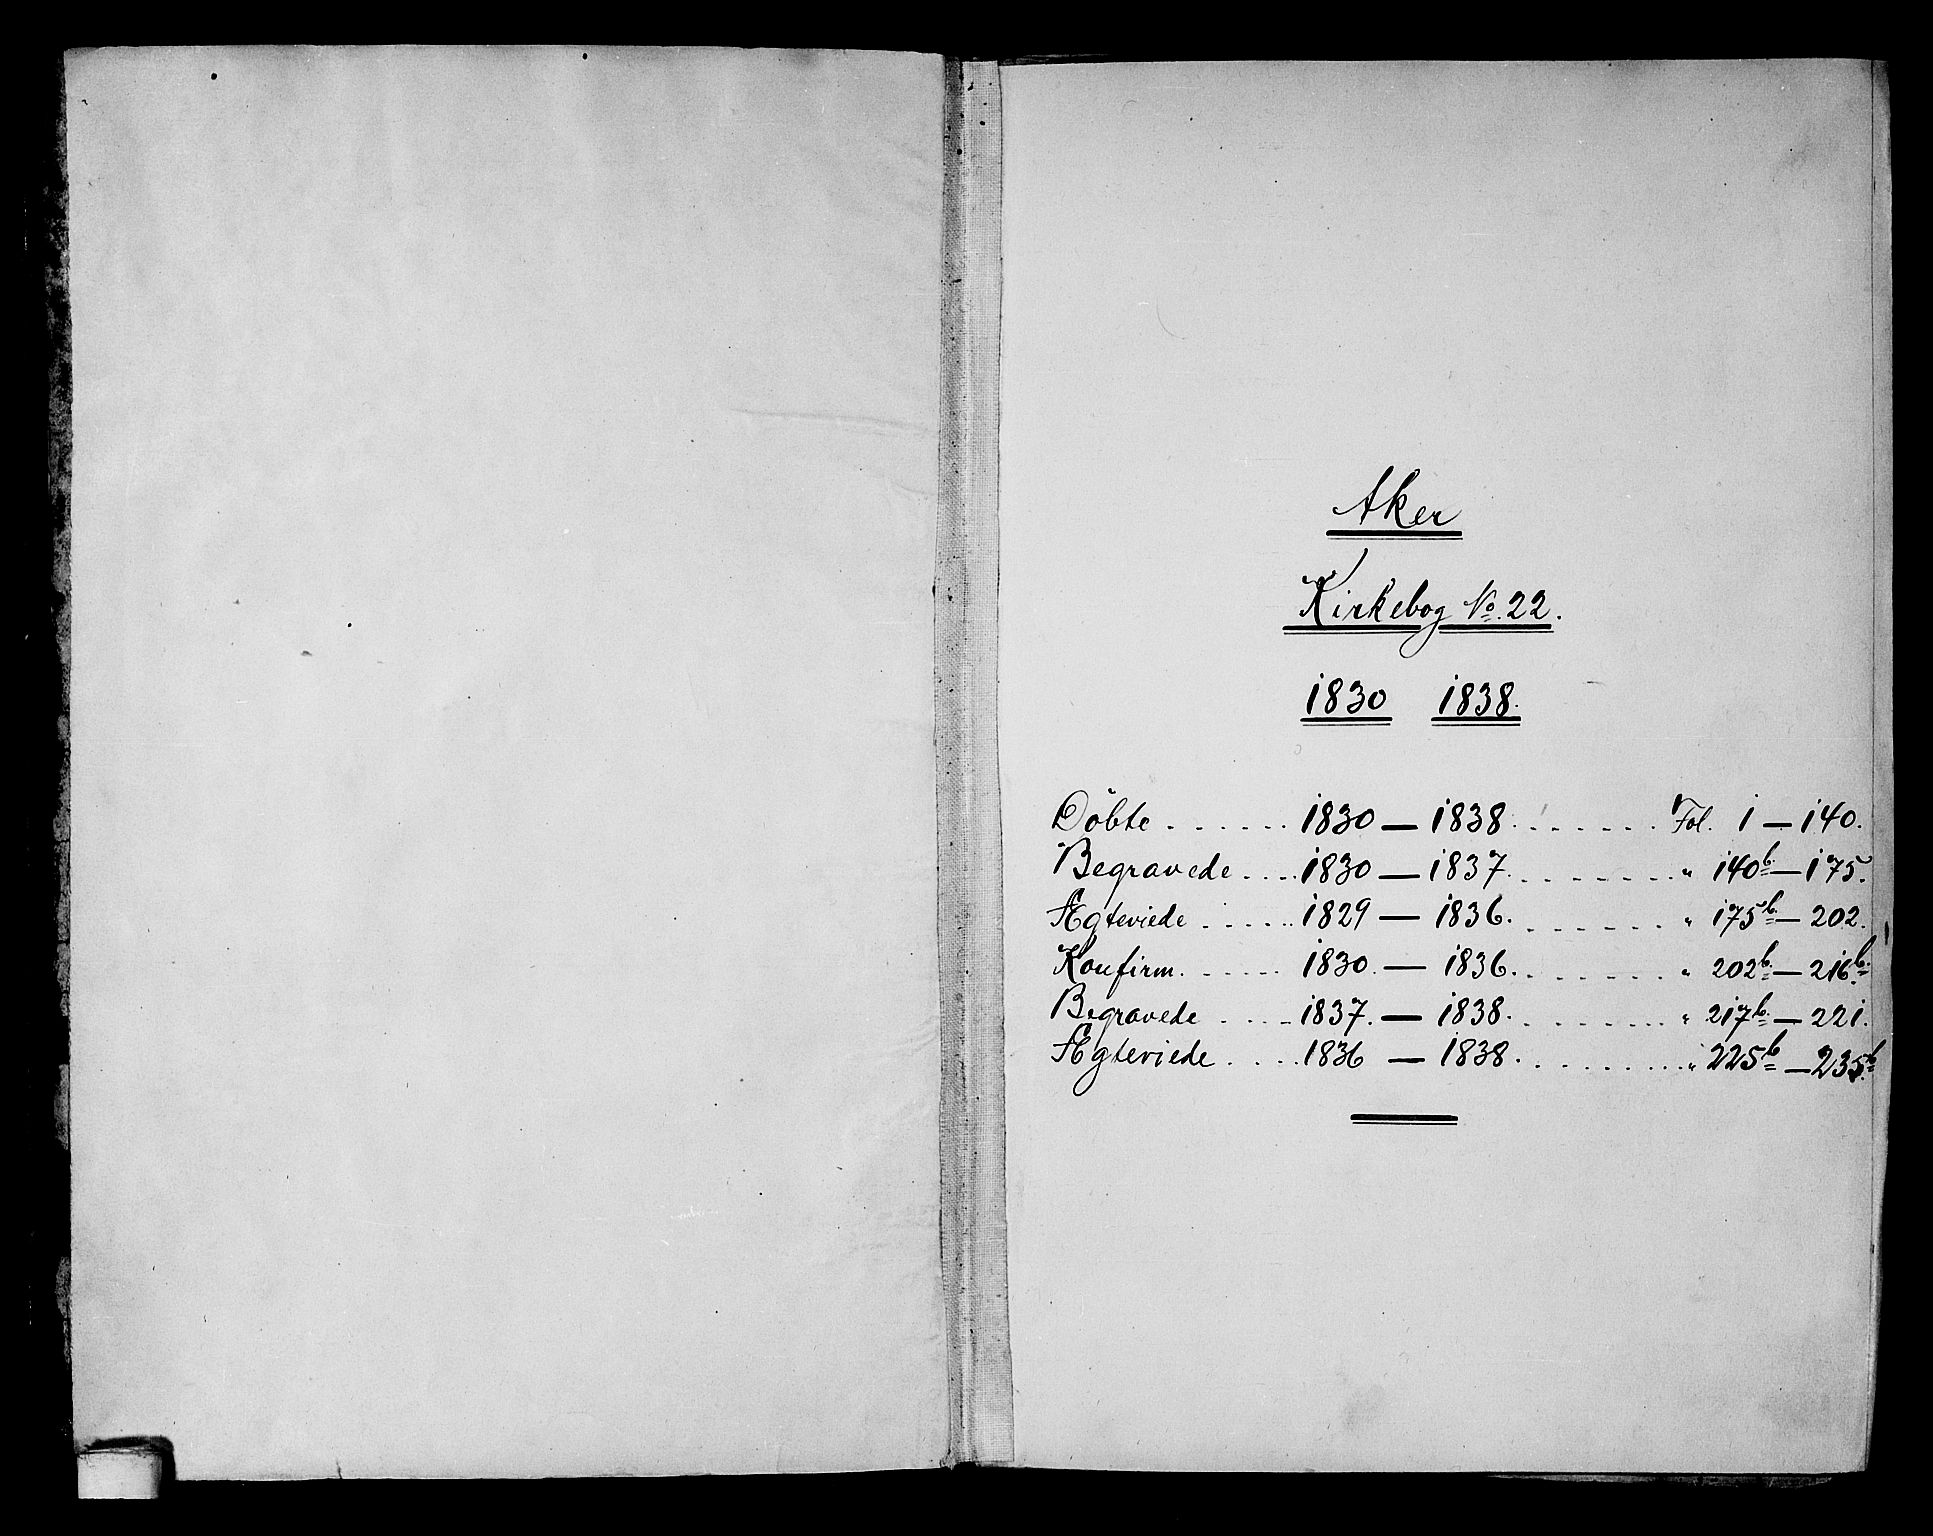 Aker
Kirkebog No. 22.
1830 1838.
Döbte . . . . . . 1830 — 1838. . . . . . . Fol. 1 — 140.
Begravede . . . . 1830 — 1837. . . . . . . " 140b. — 175.
Ægteviede . . . . . 1829 — 1836. . . . . . . " 175b. — 202.
Konfirm. . . . . . 1830. — 1836. . . . . . . " 202b. — 216b.
Begravede . . . . 1837. — 1838. . . . . . . " 217b. — 221.
Ægteviede . . . . 1836 — 1838. . . . . . . . " 225b — 235b.